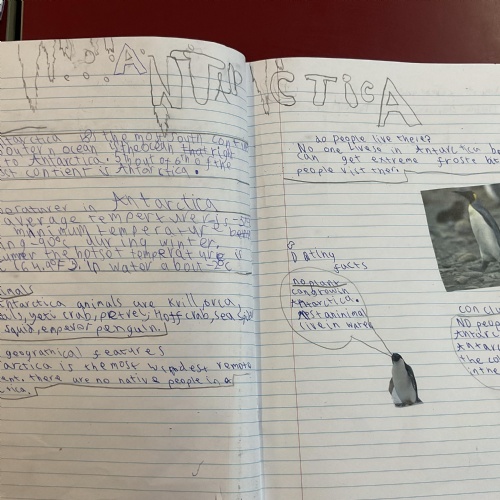 ANTARCTICA
ntarctica is the most south contie
outer n ocean
to Antarctica. 5th out of 6th of the
st contient is Antarctica.
peraturer in Antarctica
average temperture is -5
minimum temperature
ing -90°c during winter,
ummer the hottest temperature is
in water about -2°c
imals
ntarctica animals are krill, orca,
eals, yeti crab, petrel, Hoff crab, sea
squid, emperor penguin.
geograrnical features
arctica is the most windest remote
ent. there are no native people in a
tica.
do people live there?
No one lives in Antarctica be
can get extreme froste b
people visit ther
D
tiny
facts
no plant
can growin
Antarctica.
Mest animinal
live in water
conclu
No peop
Antarc
Antar
the co
in the